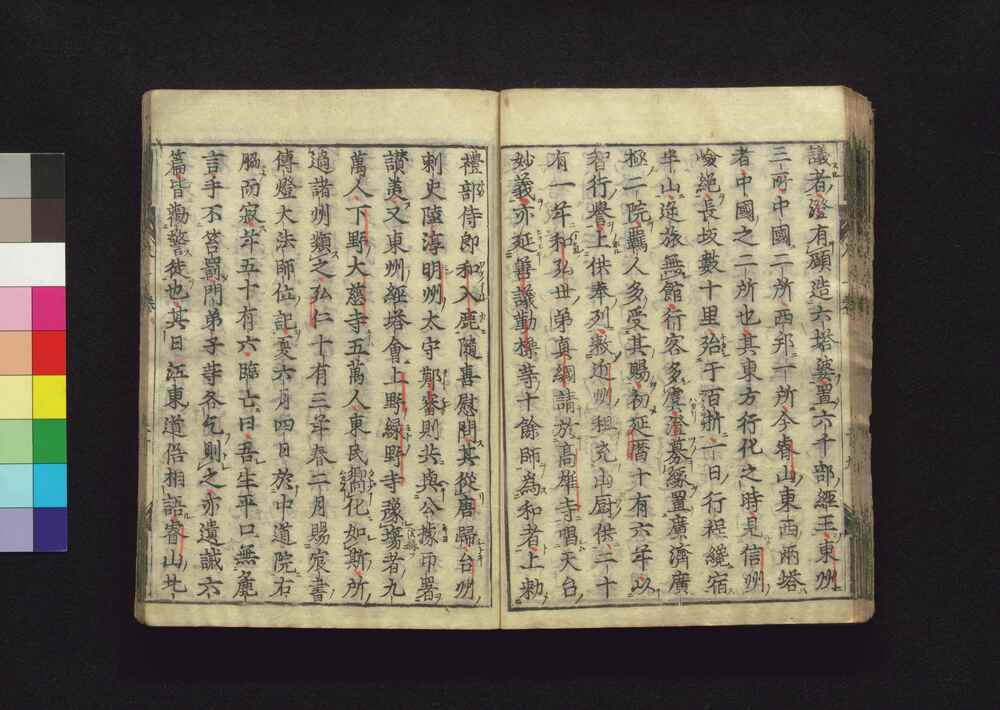 議者澄有願造六塔婆置六千部經王東州
三所中國二所西邦一所今睿山東西兩塔
者中國之二所也其東方行化之時見信州
嶮絕長坂數十里殆于百折一日行程纔宿
半山逆旅無館行客多虞澄募緣置廣濟廣
極二院羈人多受其賜初延曆十有六年以
智行譽上供奉列敕近州租充山厨供二十
有一年和弘世弟真綱請於高雄寺唱天台
妙義亦延善謙勤操等十餘師為和者上勅
禮部侍郎和入鹿隨喜慰問其從唐歸台州
刺史陸淳明州太守鄭審則共與公據印署
讃美又東州經塔會上野綠野寺襁塲者九
萬人下野大慈寺五萬人東民嚮化如斯所
過諸州類之弘仁十有三年春二月賜宸書
傳燈大法師位記夏六月四日於中道院右
脇而寂年五十有六臨亡曰吾生平口無麁
言手不笞罰門弟子等各乞則之亦遺誡六
篇皆勸誓徒也其日江東道俗相語睿山北